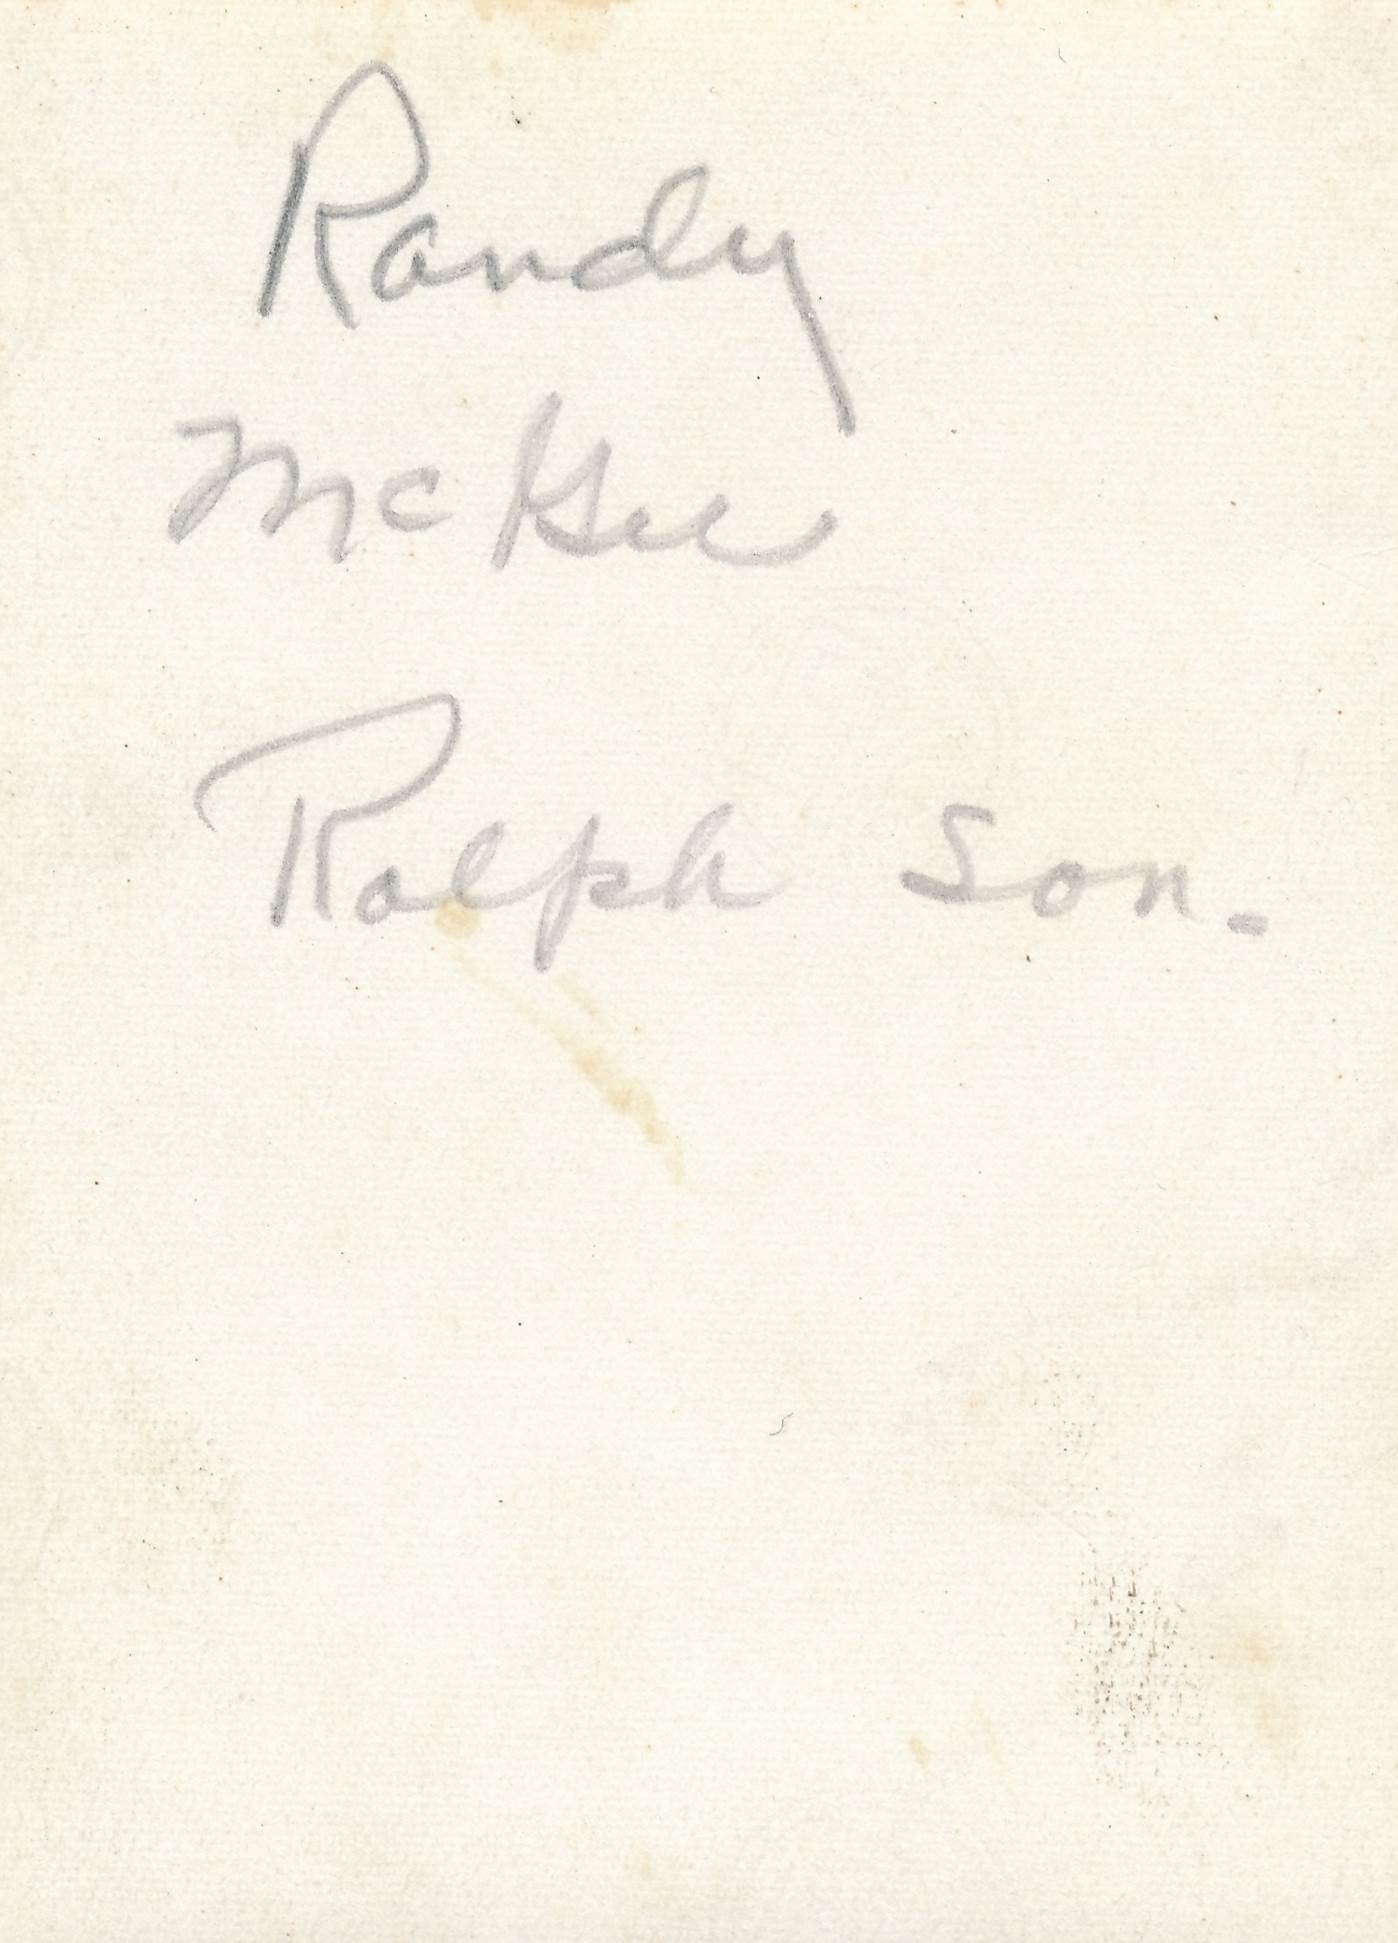 Randy
McGee
Ralph Son.